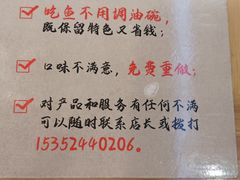 吃鱼不用調油碗,
既保留特色又省钱;
口味不满意,免费重做;
对产品和服务有任何不满
可以随时联系店长或拨打
15352440206。